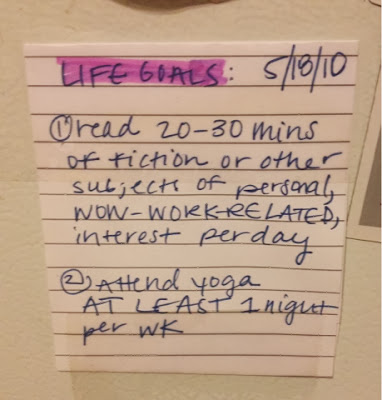 LIFE GOALS: 5/18/10
① read 20-30 mins
of fiction or other
subjects of personal,
NON-WORK-RELATED,
interest per day
② Attend yoga
AT LEAST 1 night
per WK